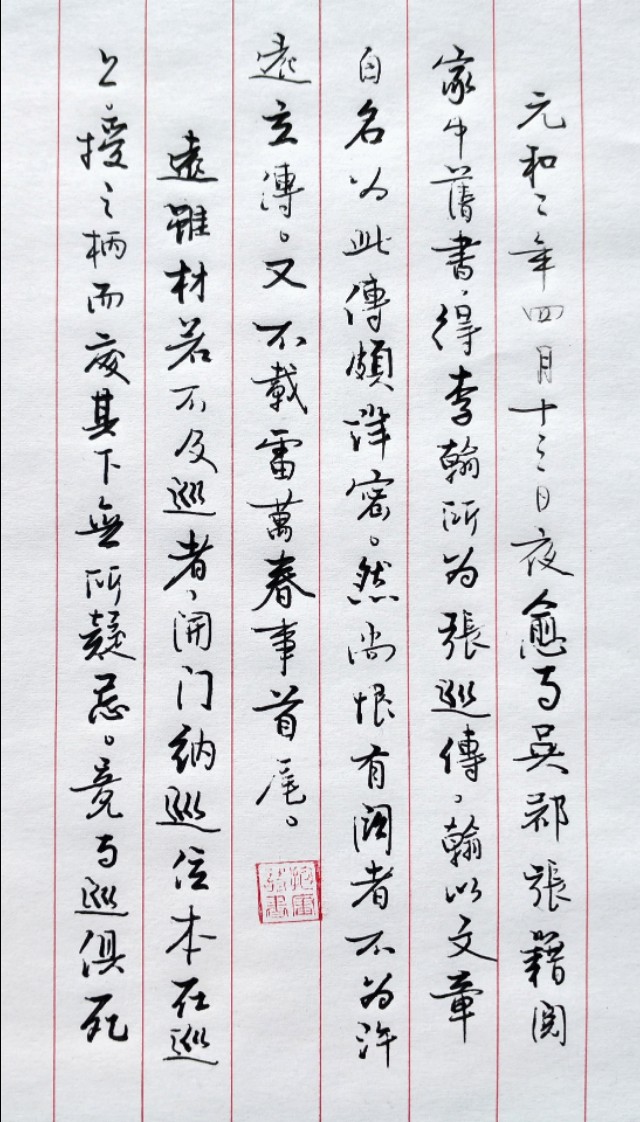 元和二年四月十三日夜愈与吴郡張籍阅
家中舊書，得李翰所为張巡傳，翰以文章
自名为此傳頗詳密。然尚恨有闕者不为许
遠立傳。又不載雷萬春事首尾。
遠雖材若不及巡者，開门纳巡位本在巡
上。授之柄而處其下無所疑忌。竟与巡俱死